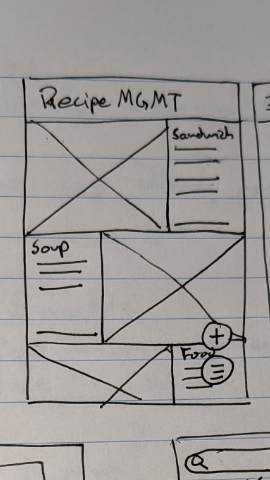 Recipe MGMT
Sandwich
Soup
Food